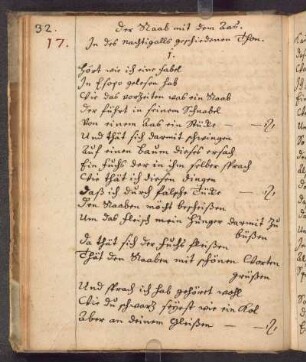 32.
Der Raab mit dem Kas.
17. In des nachtigalls geschiedenen Thon.
1.
Hört wie ich eine fabel
In Esopo gelesen hab
Wie das vorzeiten was ein Raab
Der führt in seinem Schnabel
Von einem Kas ein Stücke
Und thät sich darmit schwingen
Auf einen baum dieses ersach
Ein fuchs der in ihm selber sprach
Wie thät ich diesen dingen
Daß ich durch falsche Tücke
Den Raaben möcht bescheißen
Um das fleisch mein hunger darmit zu
büßen
Da thät sich der fuchs fleißen
Thät den Raaben mit schönen Worten
grüßen
Und sprach ich hab gehöret wohl
Wie du schwarz seyest wie ein Kol
Aber an deinem gleißen